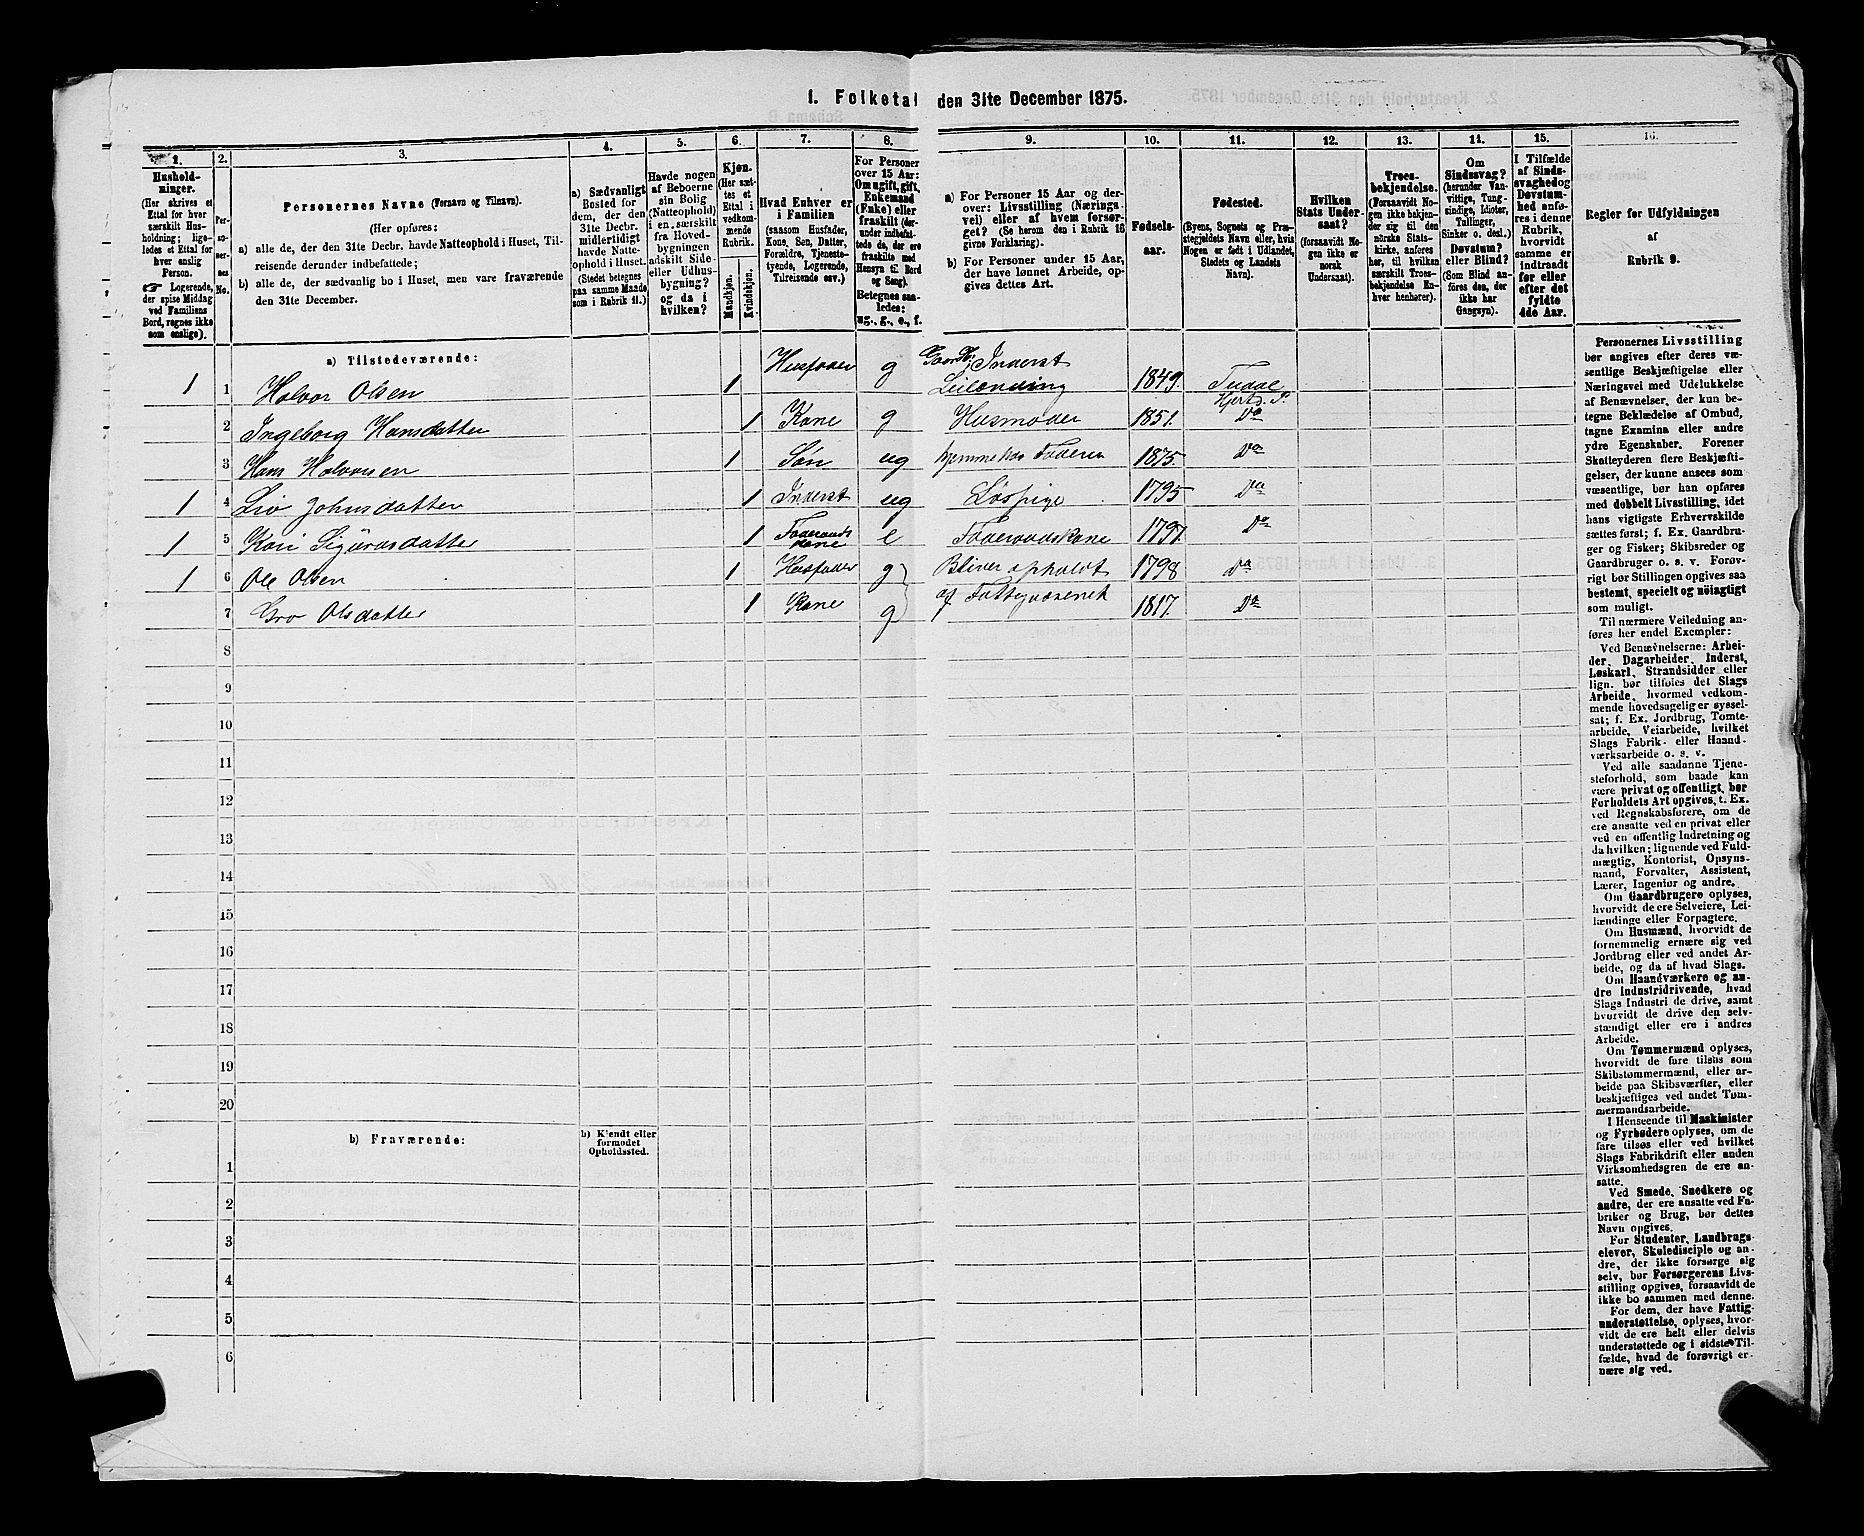 1. Folketal den 31te December 1875.
1.
Hushold-
ninger.
(Her skrives et
Ettal for hver
særskilt Hus-
holdning; lige-
ledes et Ettal for
hver enslig
Person.
Logerende,
der spise Middag
ved Familiens
Bord, regnes ikke
som enslige).
2.
Per-
so-
ner-
nes
No.
3.
Personernes Navne (Fornavn og Tilnavn).
(Her opføres:
a) alle de, der den 31te Decbr. havde Natteophold i Huset, Til-
reisende derunder indbefattede;
b) alle de, der sædvanlig bo i Huset, men vare fraværende
den 31te December.
4.
a) Sædvanligt
Bosted for
dem, der den
31te Decbr.
midlertidigt
havde Natte-
ophold i Huset.
(Stedet betegnes
paa samme Maade
som i Rubrik 11.)
5.
Havde nogen
af Beboerne
sin Bolig
(Natteophold)
i en særskilt
fra Hoved-
bygningen
adskilt Side-
eller Udhus-
bygning?
og da i
hvilken?
6.
Kjøn.
(Her sæt-
tes et
Ettal i
vedkom-
mende
Rubrik.
Mandkjøn.
Kvindekjøn.
7.
Hvad Enhver er
i Familien
(saasom Husfader,
Kone, Søn, Datter,
Forældre, Tjeneste-
tyende, Logerende,
Tilreisende osv.)
8.
For Personer
over 15 Aar:
Om ugift, gift,
Enkemand
(Enke) eller
fraskilt (der-
under indbefat-
tede de, der ere
fraskilte med
Hensyn til Bord
og Seng).
Betegnes saa-
ledes:
ug., g., e., f.
9.
a) For Personer 15 Aar og der-
over: Livsstilling (Nærings-
vei) eller af hvem forsør-
get? (Se herom den i Rubrik 16
givne Forklaring).
b) For Personer under 15 Aar,
der have lønnet Arbeide, op-
gives dettes Art.
10.
Fødsels-
aar.
11.
Fødested.
(Byens, Sognets og Præ-
stegjeldets Navn eller, hvis
Nogen er født i Udlandet,
Stedets og Landets
Navn).
12.
Hvilken
Stats Under-
saat?
(forsaavidt No-
gen ikke er
norsk
Undersaat).
13.
Troes-
bekjendelse.
(Forsaavidt No-
gen ikke bekjen-
der sig til den
norske Stats-
kirke, anføres
her, til hvilken
særskilt Troes-
bekjendelse En-
hver henhører).
14.
Om
Sindssvag?
(herunder Van-
vittige, Tung-
sindige, Idioter,
Tullinger,
Sinker o. desl.).
Døvstum?
eller Blind?
(Som Blind an-
føres den, der
ikke har
Gangsyn).
15.
I Tilfælde
af Sinds-
svaghed og
Døvstum-
hed anfø-
res i denne
Rubrik,
hvorvidt
samme er
indtraadt
før eller
efter det
fyldte
4de Aar.
16.
Regler for Udfyldningen
af
Rubrik 9.
a) Tilstedeværende:
1 1 Halvor Olsen 1 Husfader g Gaardbr. Inderst Leilænding 1849. Tudal Hjertd. P.
2 Ingeborg Hansdatter 1 Kone g Husmoder 1851. Do
3 Hans Halvorsen 1 Søn ug hjemme hos Faderen 1875. Do
1 4 Liv Johnsdatter 1 Inderst ug Løspige 1795 Do
1 5 Kari Sigurdsdatter 1 Føderaads kone e Føderaadskone 1797. Do
1 6 Ole Olsen 1 Husfader g Bliver opholdt 1798 Do
7 Gro Olsdatter 1 Kone g af Fattigvæsenet 1817. Do
8
9
10
11
12
13
14
15
16
17
18
19
20
b) Fraværende:
b) Kjendt eller
formodet
Opholdssted.
1
2
3
4
5
6
Personernes Livsstilling
bør angives efter deres væ-
sentlige Beskjæftigelse eller
Næringsvei med Udelukkelse
af Benævnelser, der kun be-
tegne Beklædelse af Ombud,
tagne Examina eller andre
ydre Egenskaber. Forener
Skatteyderen flere Beskjæfti-
gelser, der kunne ansees som
væsentlige, bør han opføres
med dobbelt Livsstilling, idet
hans vigtigste Erhvervskilde
sættes først; f. Ex. Gaardbru-
ger og Fisker; Skibsreder og
Gaardbruger o. s. v. Forøv-
rigt bør Stillingen opgives saa
bestemt, specielt og nøiagtigt
som muligt.
Til nærmere Veiledning an-
føres her endel Exempler:
Ved Benævnelserne: Arbei-
der, Dagarbeider, Inderst,
Løskarl, Strandsidder eller
lign. bør tilføies det Slags
Arbeide, hvormed vedkom-
mende hovedsagelig er syssel-
sat; f. Ex. Jordbrug, Tomte-
arbeide, Veiarbeide, hvilket
Slags Fabrik- eller Haand-
værksarbeide o. s. v.
Ved alle saadanne Tjene-
steforhold, som baade kan
være privat og offentligt, bør
Forholdets Art opgives, t. Ex.
ved Regnskabsførere, om de
ere ansatte ved en privat eller
ved en offentlig Indretning og
da hvilken; lignende ved Fuld-
mægtig, Kontorist, Opsyns-
mand, Forvalter, Assistent,
Lærer, Ingeniør og andre.
Om Gaardbrugere oplyses,
hvorvidt de ere Selveiere, Lei-
lændinge eller Forpagtere.
Om Husmænd, hvorvidt de
fornemmelig ernære sig ved
Jordbrug eller ved andet Ar-
beide, og da af hvad Slags.
Om Haandværkere og an-
dre Industridrivende, hvad
Slags Industri de drive, samt
hvorvidt de drive den selv-
stændigt eller ere i andres
Arbeide.
Om Tømmermænd oplyses,
hvorvidt de fare tilsøs som
Skibstømmermænd, eller ar-
beide paa Skibsværfter, eller
beskjæftiges ved andet Tøm-
mermandsarbeide.
I Henseende til Maskinister
og Fyrbødere oplyses, om de
fare tilsøs eller ved hvilket
Slags Fabrikdrift eller anden
Virksomhedsgren de ere an-
satte.
Ved Smede, Snedkere og
andre, der ere ansatte ved Fa-
briker og Brug, bør dettes
Navn opgives.
For Studenter, Landbrugs-
elever, Skoledisciple og an-
dre, der ikke forsørge sig
selv, bør Forsørgerens Livs-
stilling opgives, forsaavidt de
ikke bo sammen med denne.
For dem, der have Fattig-
understøttelse, oplyses, hvor-
vidt de ere helt eller delvis
understøttede og i sidste Til-
fælde, hvad de forøvrigt er-
nære sig ved.